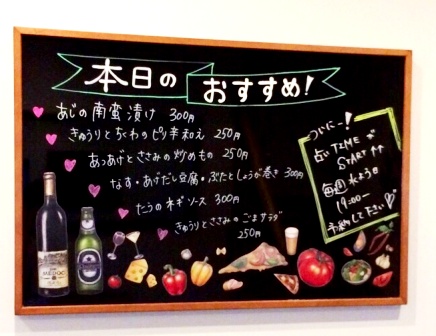 本日の
おすすめ!
あじの南蛮漬け 300円
きゅうりとちくわのピリ辛和え 250円
あつあげとささみの炒めもの 250円
なす・あげだし豆腐・ぶたとしょうが巻き 300円
たらのネギソース 300円
きゅうりとささみのごまサラダ
250円
ついにー!
占いTIME
START↑↑
毎週水よう日
19:00〜
予約して下さい♡